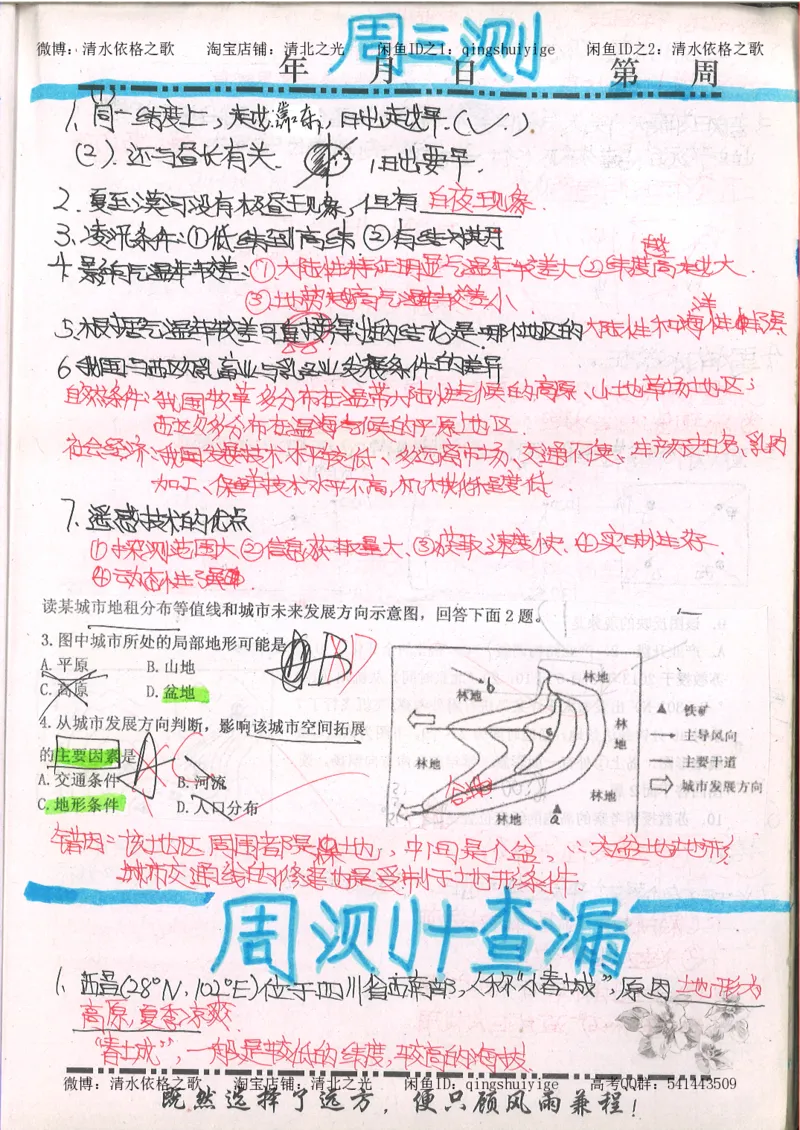 微博：清水依格之歌 淘宝店铺：清北之光 闲鱼ID之1：qingshuiyige 闲鱼ID之2：清水依格之歌
周三测
年 月 日 第 周
1.(1)同一纬度上，越靠东，日出越早.(√.)
(2).还与昼长有关. 日出要早.
2.夏至漠河没有极昼现象，但有 白夜现象.
3.凌汛条件:①低纬到高纬 ②有结冰期
4.影响气温年较差:①大陆性特征明显气温年较差大 ②纬度高越大.
越
③地势越高气温年较差小
5.根据气温年较差可直接得出的结论是:哪个地区的大陆性和海洋性
6.我国与西欧乳畜业与乳畜业发展条件的差异
自然条件:我国牧草多分布在温带大陆性气候的高原、山地草场地区；
西欧多分布在温海气候的平原地区.
社会经济:我国发展技术水平较低、多远离市场、交通不便、生产历史短、乳肉
加工、保鲜技术水平不高，机械化程度低.
7.遥感技术的优点
①探测范围大 ②信息获取量大、③获取速度快、④实时性好.
④动态性强
读某城市地租分布等值线和城市未来发展方向示意图，回答下面2题。
3.图中城市所处的局部地形可能是
A.平原 B.山地
C.高原 D.盆地
4.从城市发展方向判断，影响该城市空间拓展
的主要因素是
A.交通条件 B.河流
C.地形条件 D.人口分布
林地
b
林地
林地
c
林地
谷地
林地
林地
a
铁矿
主导风向
主要干道
城市发展方向
错因:该地区周围都是林地，中间是个盆，∴为盆地地形
城市交通线的修建也是受制于地形条件
周测十查漏
1.西昌(28°N,102°E)位于四川省西南部,人称"小春城",原因 地形为
高原,夏季凉爽.
"春城",一般是较低的纬度,较高的海拔.
微博：清水依格之歌 淘宝店铺：清北之光 闲鱼ID：qingshuiyige 高考QQ群：541443509
既然选择了远方，便只顾风雨兼程！